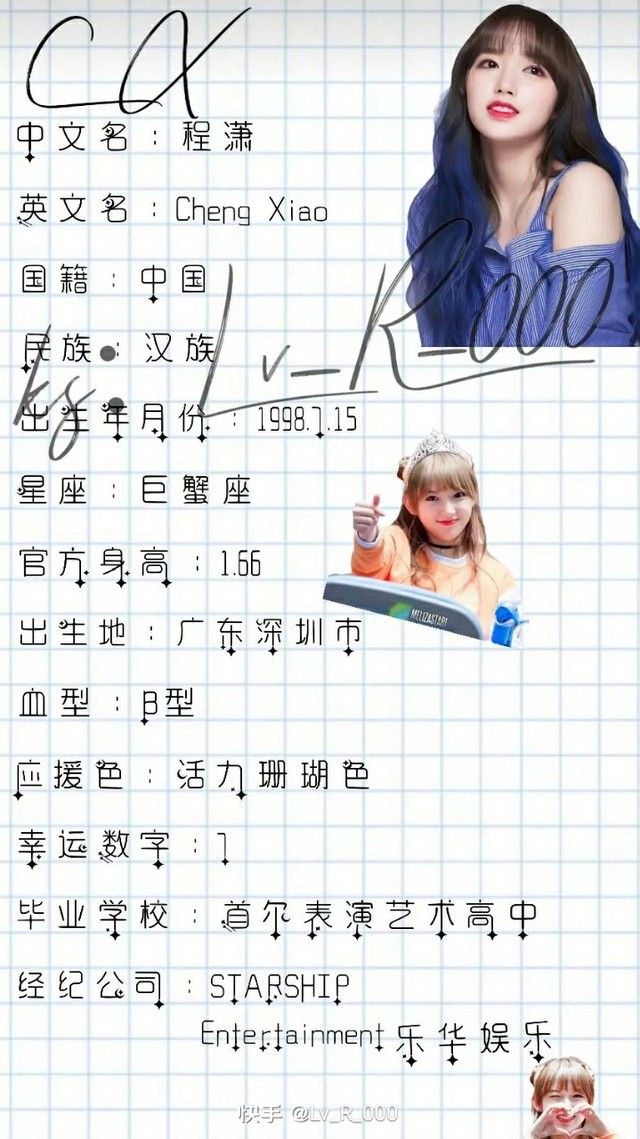 CX
中文名：程潇
英文名：Cheng Xiao
国籍：中国
民族：汉族
ks: Lv_R_000
出生年月份：1998.7.15
星座：巨蟹座
官方身高：1.66
MELIZASTAR1
出生地：广东深圳市
血型：B型
应援色：活力珊瑚色
幸运数字：7
毕业学校：首尔表演艺术高中
经纪公司：STARSHIP
Entertainment乐华娱乐
快手 @Lv_R_000